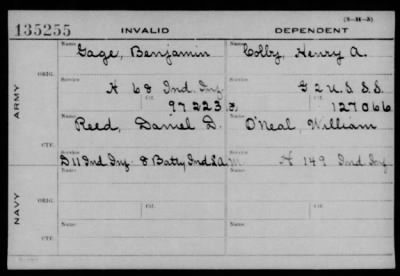 (3-M-5)
135255 INVALID DEPENDENT
Name: Name:
Gage, Benjamin Colby, Henry A.
ORIG.
Service: Service:
A 68 Ind. Inf. G 2 U.S.S.S.
Ctf. Ctf.
97223 127066
ARMY
Name: Name:
Reed, Daniel D. O'Neal, William
CTF.
Service: Service:
D 11 Ind Inf & Batty Ind L.A. A 149 Ind Inf
Name: Name:
ORIG.
Ctf. Ctf.
NAVY
Name: Name:
CTF.